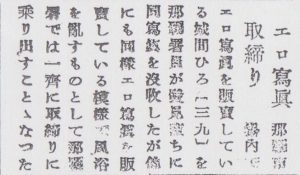 エロ寫眞
取締り
那覇市
内で
エロ寫眞を販賣してい
る城間ひろ【三九】を
那覇署員が發見直ちに
同寫眞を沒收したが他
にも同様エロ寫眞を販
賣している模様で風俗
を亂すものとして那覇
署では一齊に取締りに
乘り出すことゝなつた